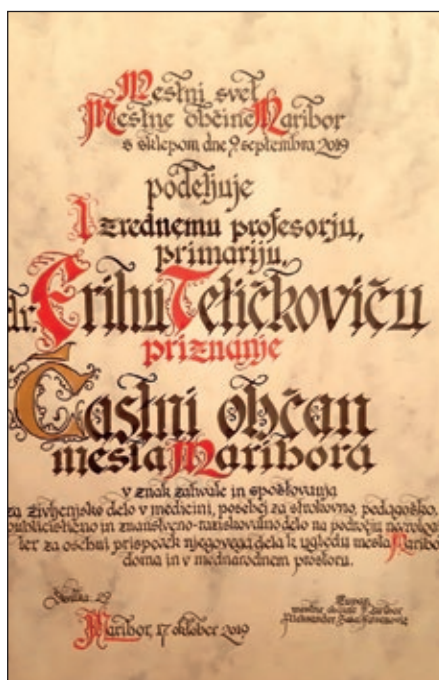 Mestni svet
Mestne občine Maribor
s sklepom dne 9. septembra 2019
podeljuje
Izrednemu profesorju,
primariju,
dr. Erihu Tetičkoviču
priznanje
Častni občan
mesta Maribora
v znak zahvale in spoštovanja
za življenjsko delo v medicini, posebej za strokovno, pedagoško,
publicistično in znanstveno-raziskovalno delo na področju nevrolog
ter za osebni prispevek njegovega dela k ugledu mesta Maribo
doma in v mednarodnem prostoru.
Številka 29
Maribor, 17. oktober 2019
Župan
mestne občine Maribor
Aleksander Saša Arsenovič